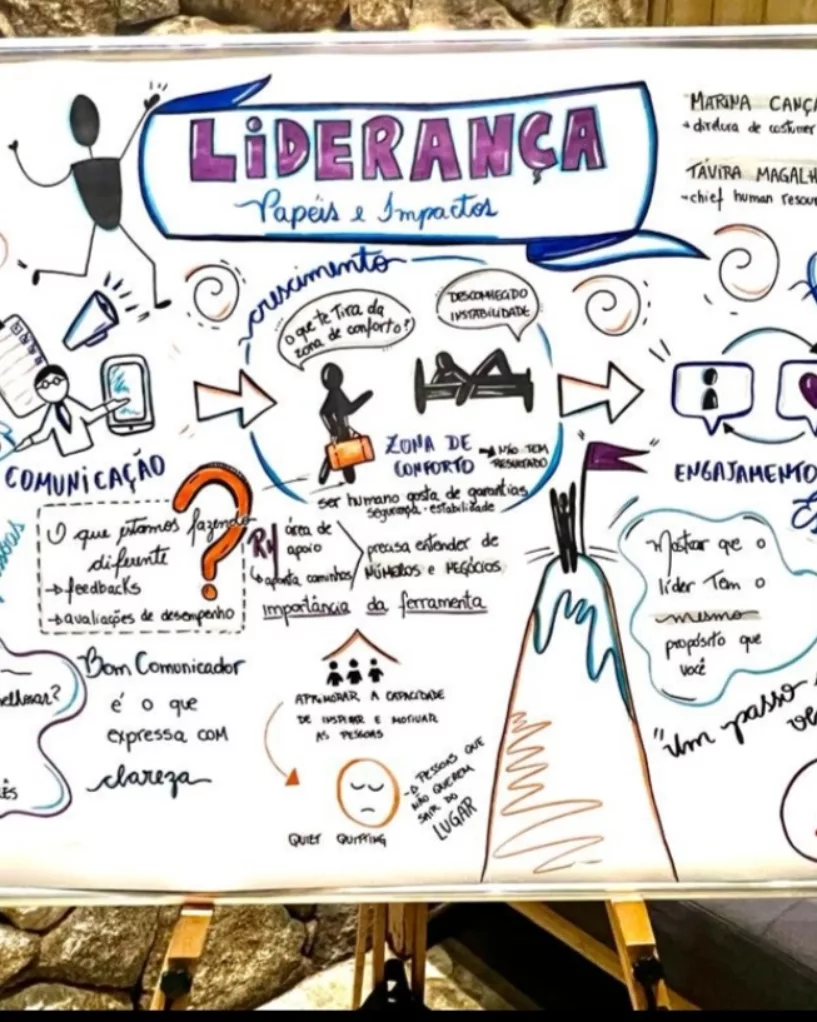 LiDERANÇA
Papéis e Impactos
MARINA CANÇA
diretora de costumer
TÁVIRA MAGALH
chief human resour
crescimento
o que te Tira da
zona de conforto?
DESCONHECIDO
INSTABILIDADE
ZONA DE
CONFORTO
NÃO TEM
RESULTADO
ser humano gosta de garantias
segurança · estabilidade
COMUNICAÇÃO
O que estamos fazendo
diferente
feedbacks
avaliações de desempenho
?
RH
área de
apoio
aponta caminhos
precisa entender de
NÚMEROS e NEGÓCIOS
importância da ferramenta
APRIMORAR A CAPACIDADE
DE INSPIRAR E MOTIVAR
AS PESSOAS
QUIET QUITTING
PESSOAS QUE
NÃO QUEREM
SAIR DO
LUGAR
Bom Comunicador
é o que
expressa com
clareza
elhorar?
ês
ssoas
ENGAJAMENTO
Mostrar que o
líder Tem o
mesmo
propósito que
você
"Um passo
ve